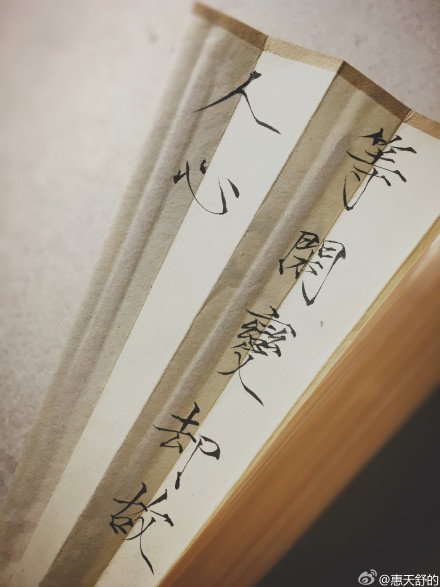 等閑變却故
人心
@惠天舒的